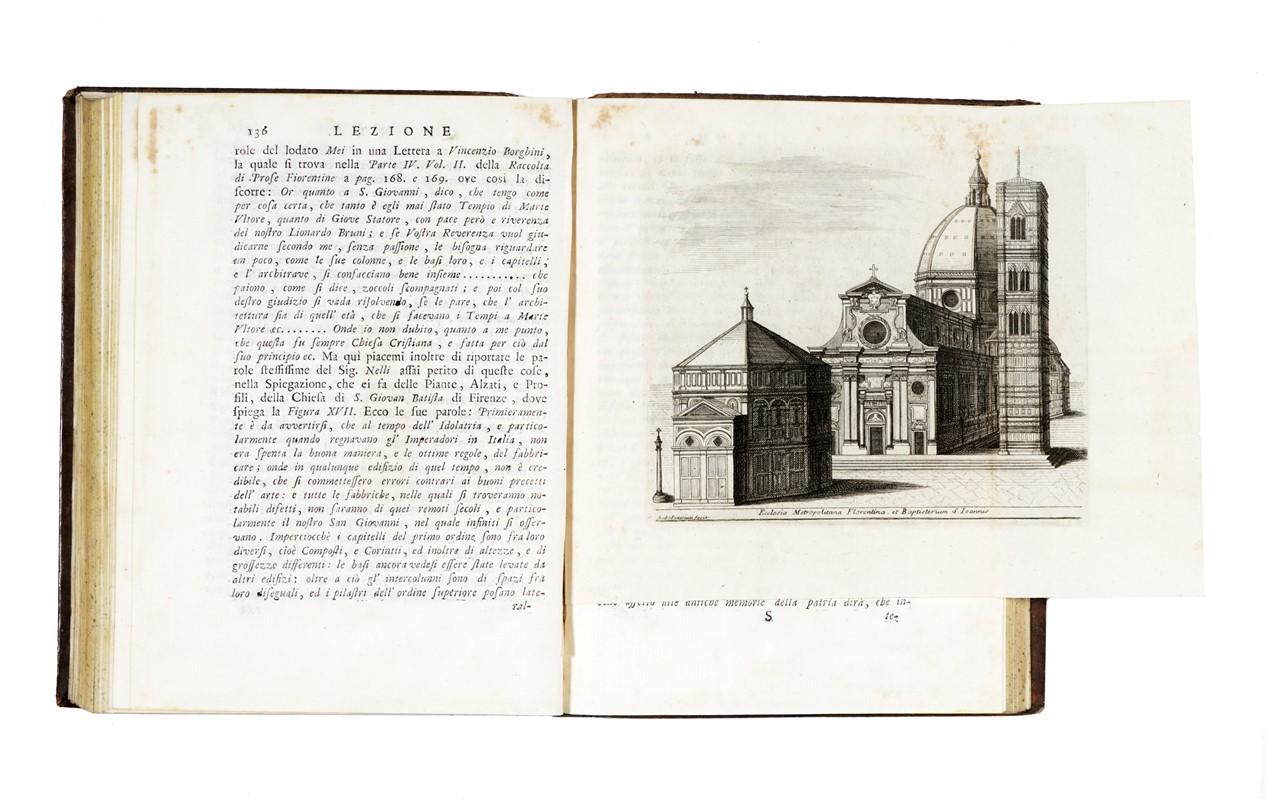 136 LEZIONE
role del lodato Mei in una Lettera a Vincenzio Borghini,
la quale ſi trova nella Parte IV. Vol. II. della Raccolta
di Proſe Fiorentine a pag. 168. e 169. ove così la di-
ſcorre: Or quanto a S. Giovanni, dico, che tengo come
per coſa certa, che tanto è egli mai ſtato Tempio di Marte
Vltore, quanto di Giove Statore, con pace però e riverenza
del noſtro Lionardo Bruni; e ſe Voſtra Reverenza vuol giu-
dicarne ſecondo me, ſenza paſſione, le biſogna riguardare
un poco, come le ſue colonne, e le baſi loro, e i capitelli;
e l' architrave, ſi confacciano bene inſieme.......... che
paiono, come ſi dice, zoccoli ſcompagnati; e poi col ſuo
deſtro giudizio ſi vada riſolvendo, ſe le pare, che l' archi-
tettura ſia di quell' età, che ſi facevano i Tempi a Marte
Vltore ec........ Onde io non dubito, quanto a me punto,
che queſta fu ſempre Chieſa Criſtiana, e fatta per ciò dal
ſuo principio ec. Ma quì piacemi inoltre di riportare le pa-
role ſteſſiſſime del Sig. Nelli aſſai perito di queſte coſe,
nella Spiegazione, che ei fa delle Piante, Alzati, e Pro-
fili, della Chieſa di S. Giovan Batiſta di Firenze, dove
ſpiega la Figura XVII. Ecco le ſue parole: Primieramen-
te è da avvertirſi, che al tempo dell' Idolatria, e partico-
larmente quando regnavano gl' Imperadori in Italia, non
era ſpenta la buona maniera, e le ottime regole, del fabbri-
care; onde in qualunque edifizio di quel tempo, non è cre-
dibile, che ſi commetteſſero errori contrari ai buoni precetti
dell' arte: e tutte le fabbriche, nelle quali ſi troveranno no-
tabili difetti, non ſaranno di quei remoti ſecoli, e partico-
larmente il noſtro San Giovanni, nel quale infiniti ſi oſſer-
vano. Imperciocchè i capitelli del primo ordine ſono fra loro
diverſi, cioè Compoſti, e Corintii, ed inoltre di altezze, e di
groſſezze differenti: le baſi ancora vedeſi eſſere ſtate levate da
altri edifizi: oltre a ciò gl' intercolunni ſono di ſpazi fra
loro diſeguali, ed i pilaſtri dell' ordine ſuperiore poſano late-
ral-
Ecclesia Metropolitana Florentina, et Baptisterium S. Ioannis
alle antiche memorie della patria dirà, che in-
S te-